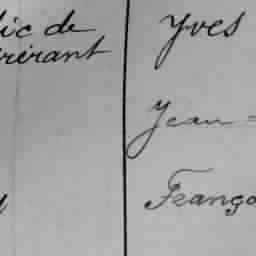 lic de
rérant
Yves
Jean-
Franço